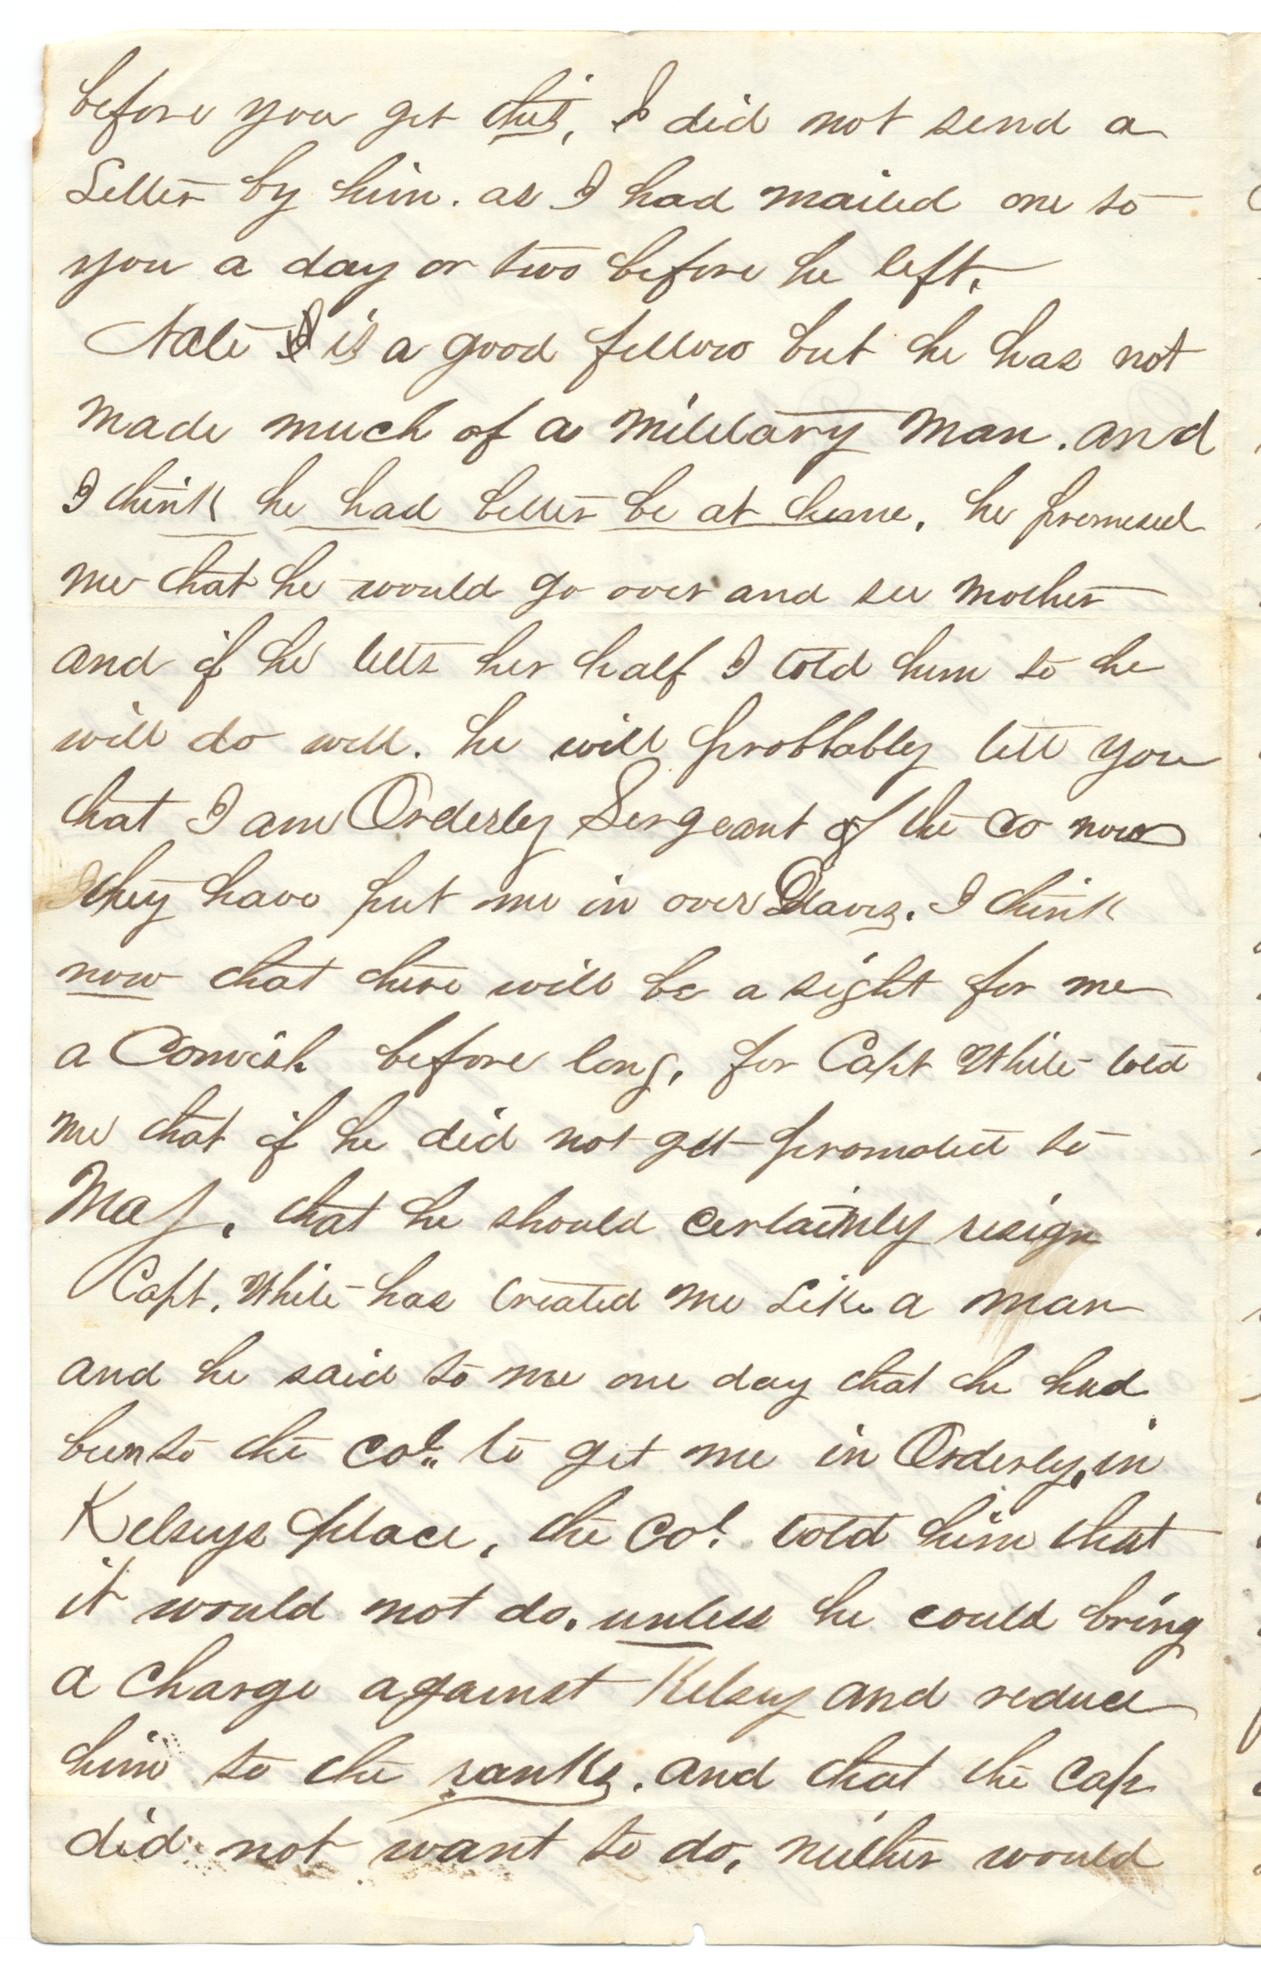 before you get this, I did not send a
Letter by him. as I had mailed one to
you a day or two before he left.
Nate is a good fellow but he has not
made much of a Millitary man. and
I think he had better be at home. he promised
me that he would go over and see Mother
and if he tells her half I told him to he
will do well. he will probbably tell you
that I am Orderly Sergeant of the co now
they have put me in over Davis. I think
now that there will be a sight for me
a Comish before long, for Capt White told
me that if he did not get promoted to
Maj. that he should certainly resign
Capt. White has treated me Like a man
and he said to me one day that he had
been to the Col. to get me in Orderly, in
Kelseys place, the Col. told him that
it would not do. unless he could bring
a charge against Kelsey and reduce
him to the ranks. and that the Cap
did not want to do, neither would